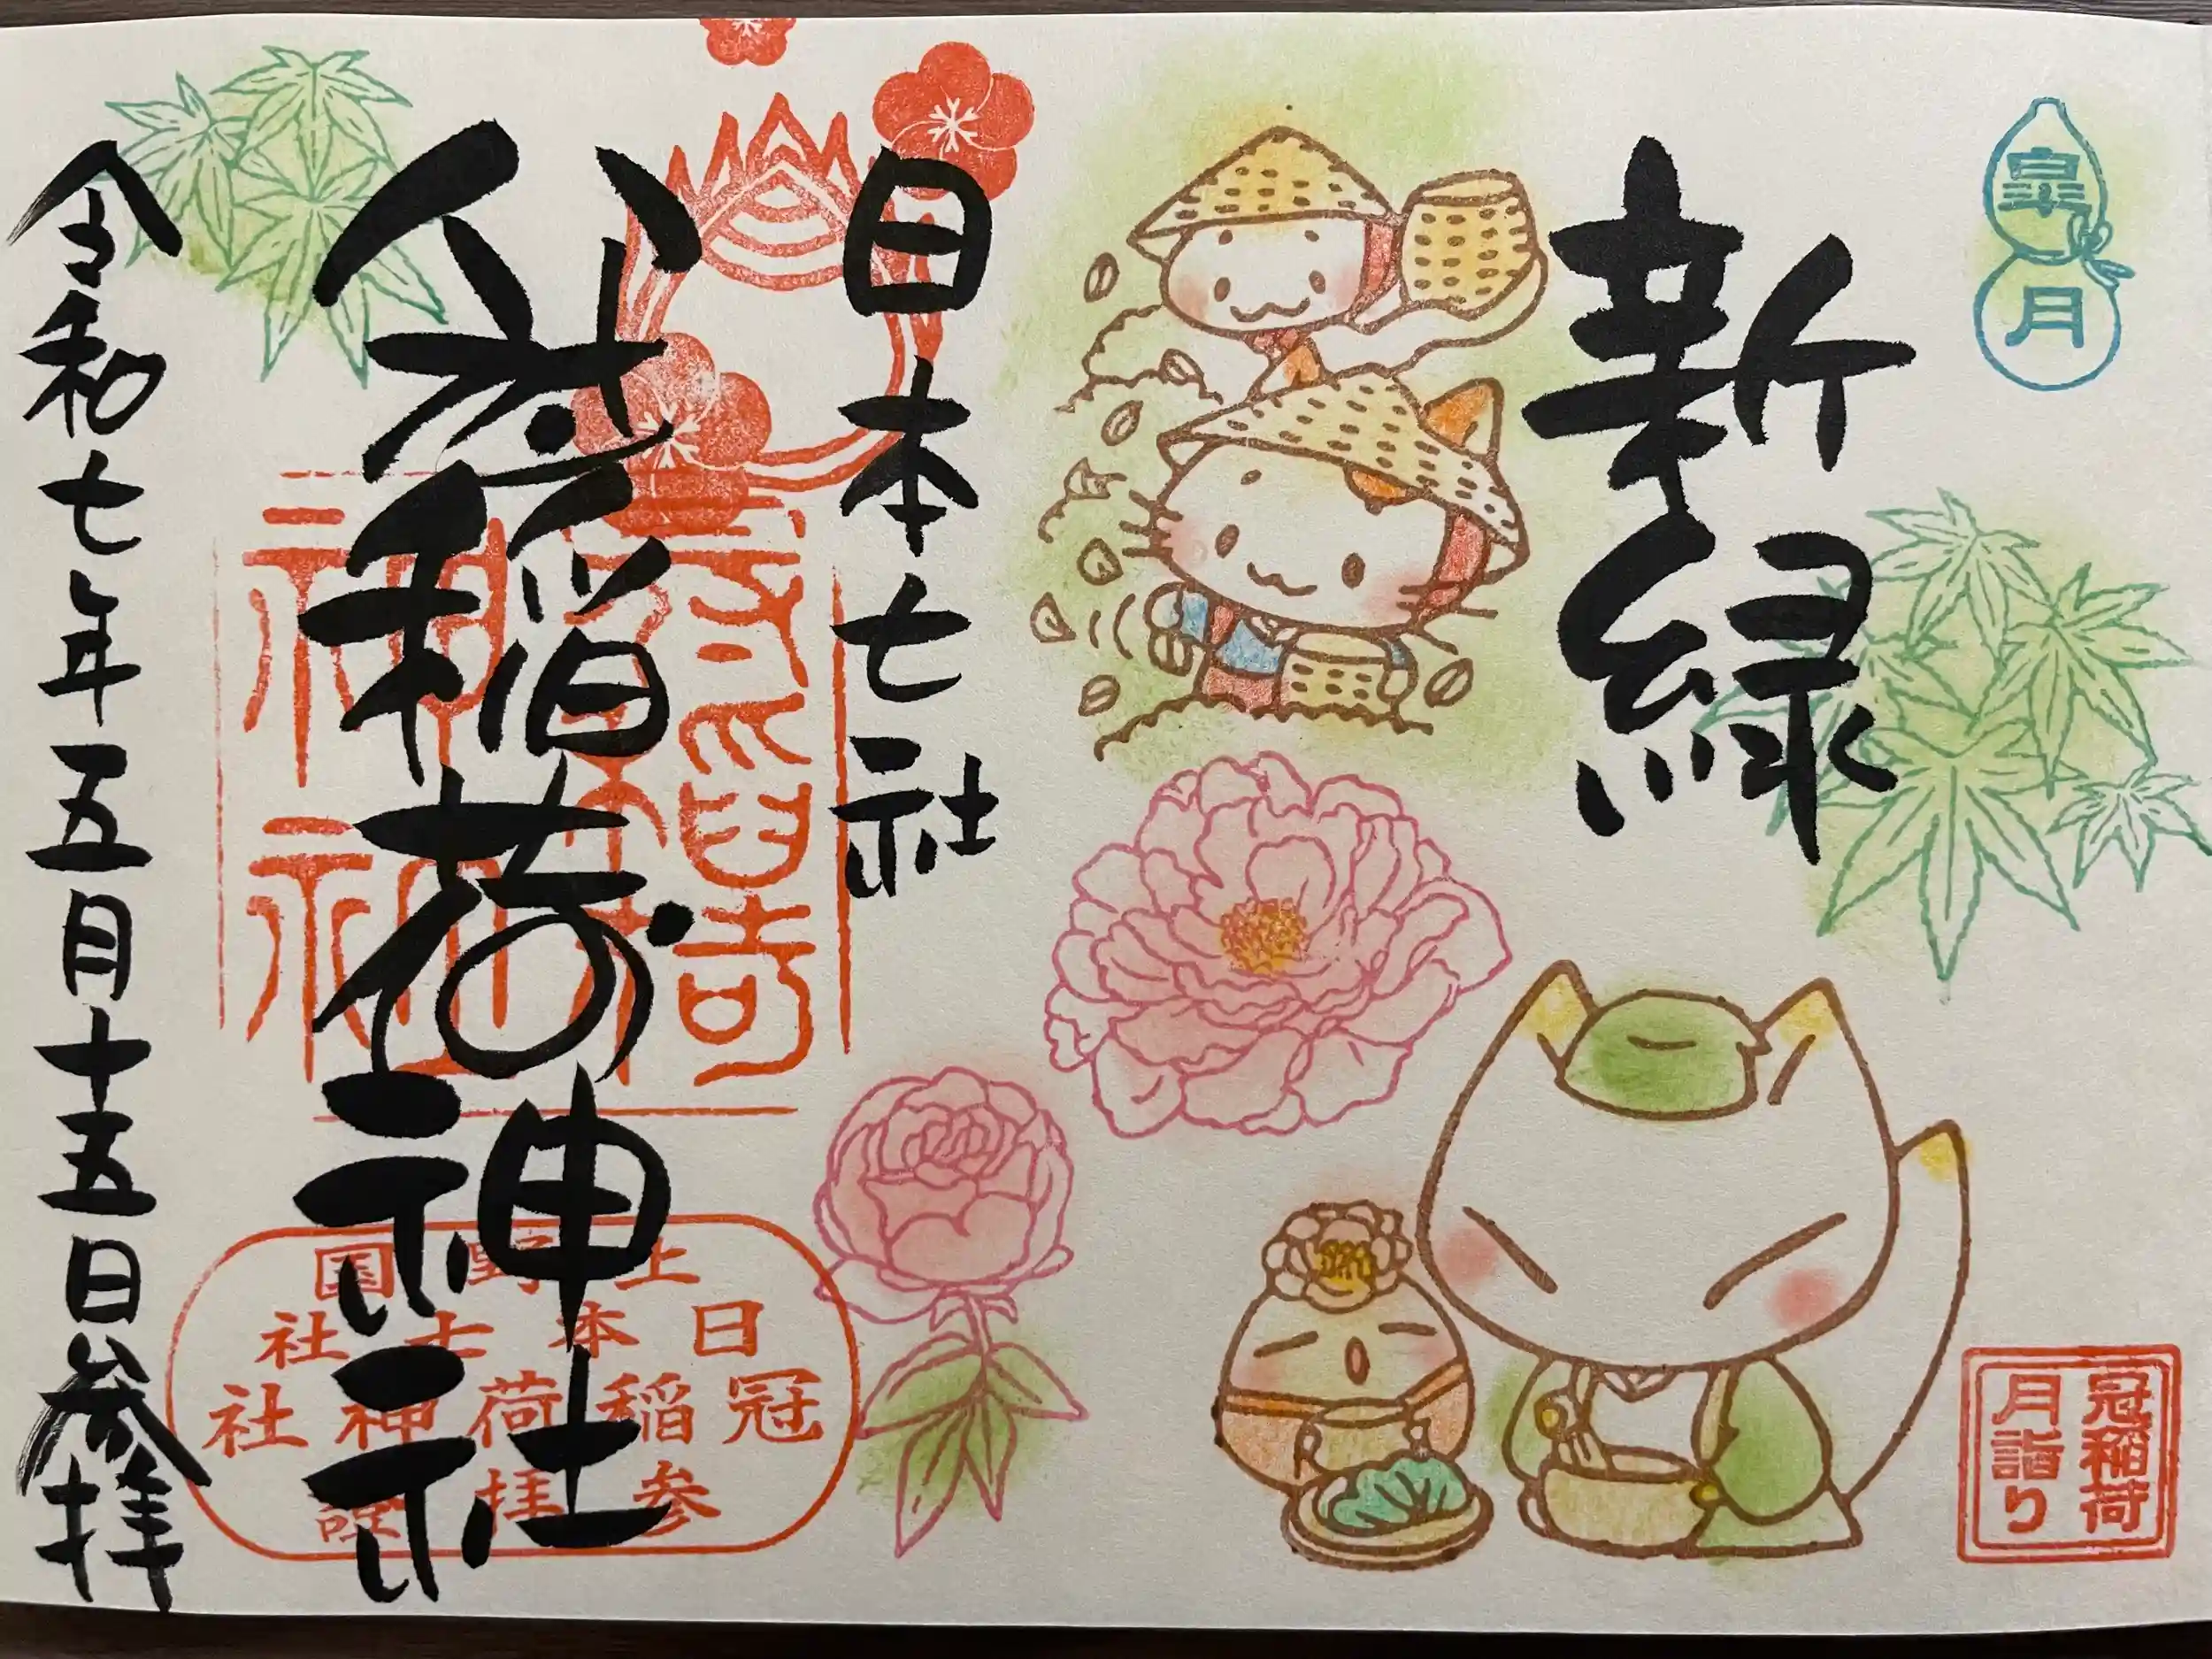 皐月
新緑
冠稲荷
月詣り
日本七社
冠稲荷神社
上野国
日本七社
冠稲荷神社
参拝證
令和七年五月十五日参拝